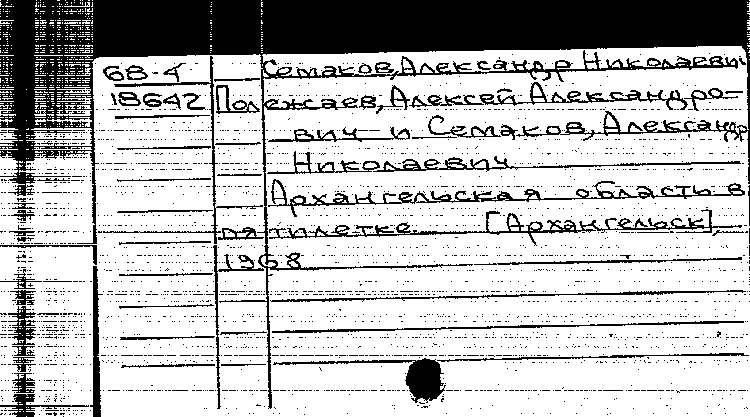 68-4 Семаков, Александр Николаевич
18642 Полежаев, Алексей Александро-
вич и Семаков, Александр
Николаевич
Архангельская область в
пятилетке. [Архангельск],
1968